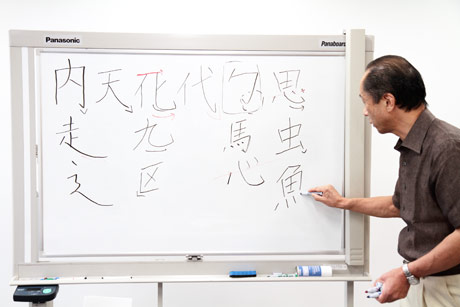 Panasonic
Panaboard
内 天 化 代 思
走 九 馬 虫
区 心 魚